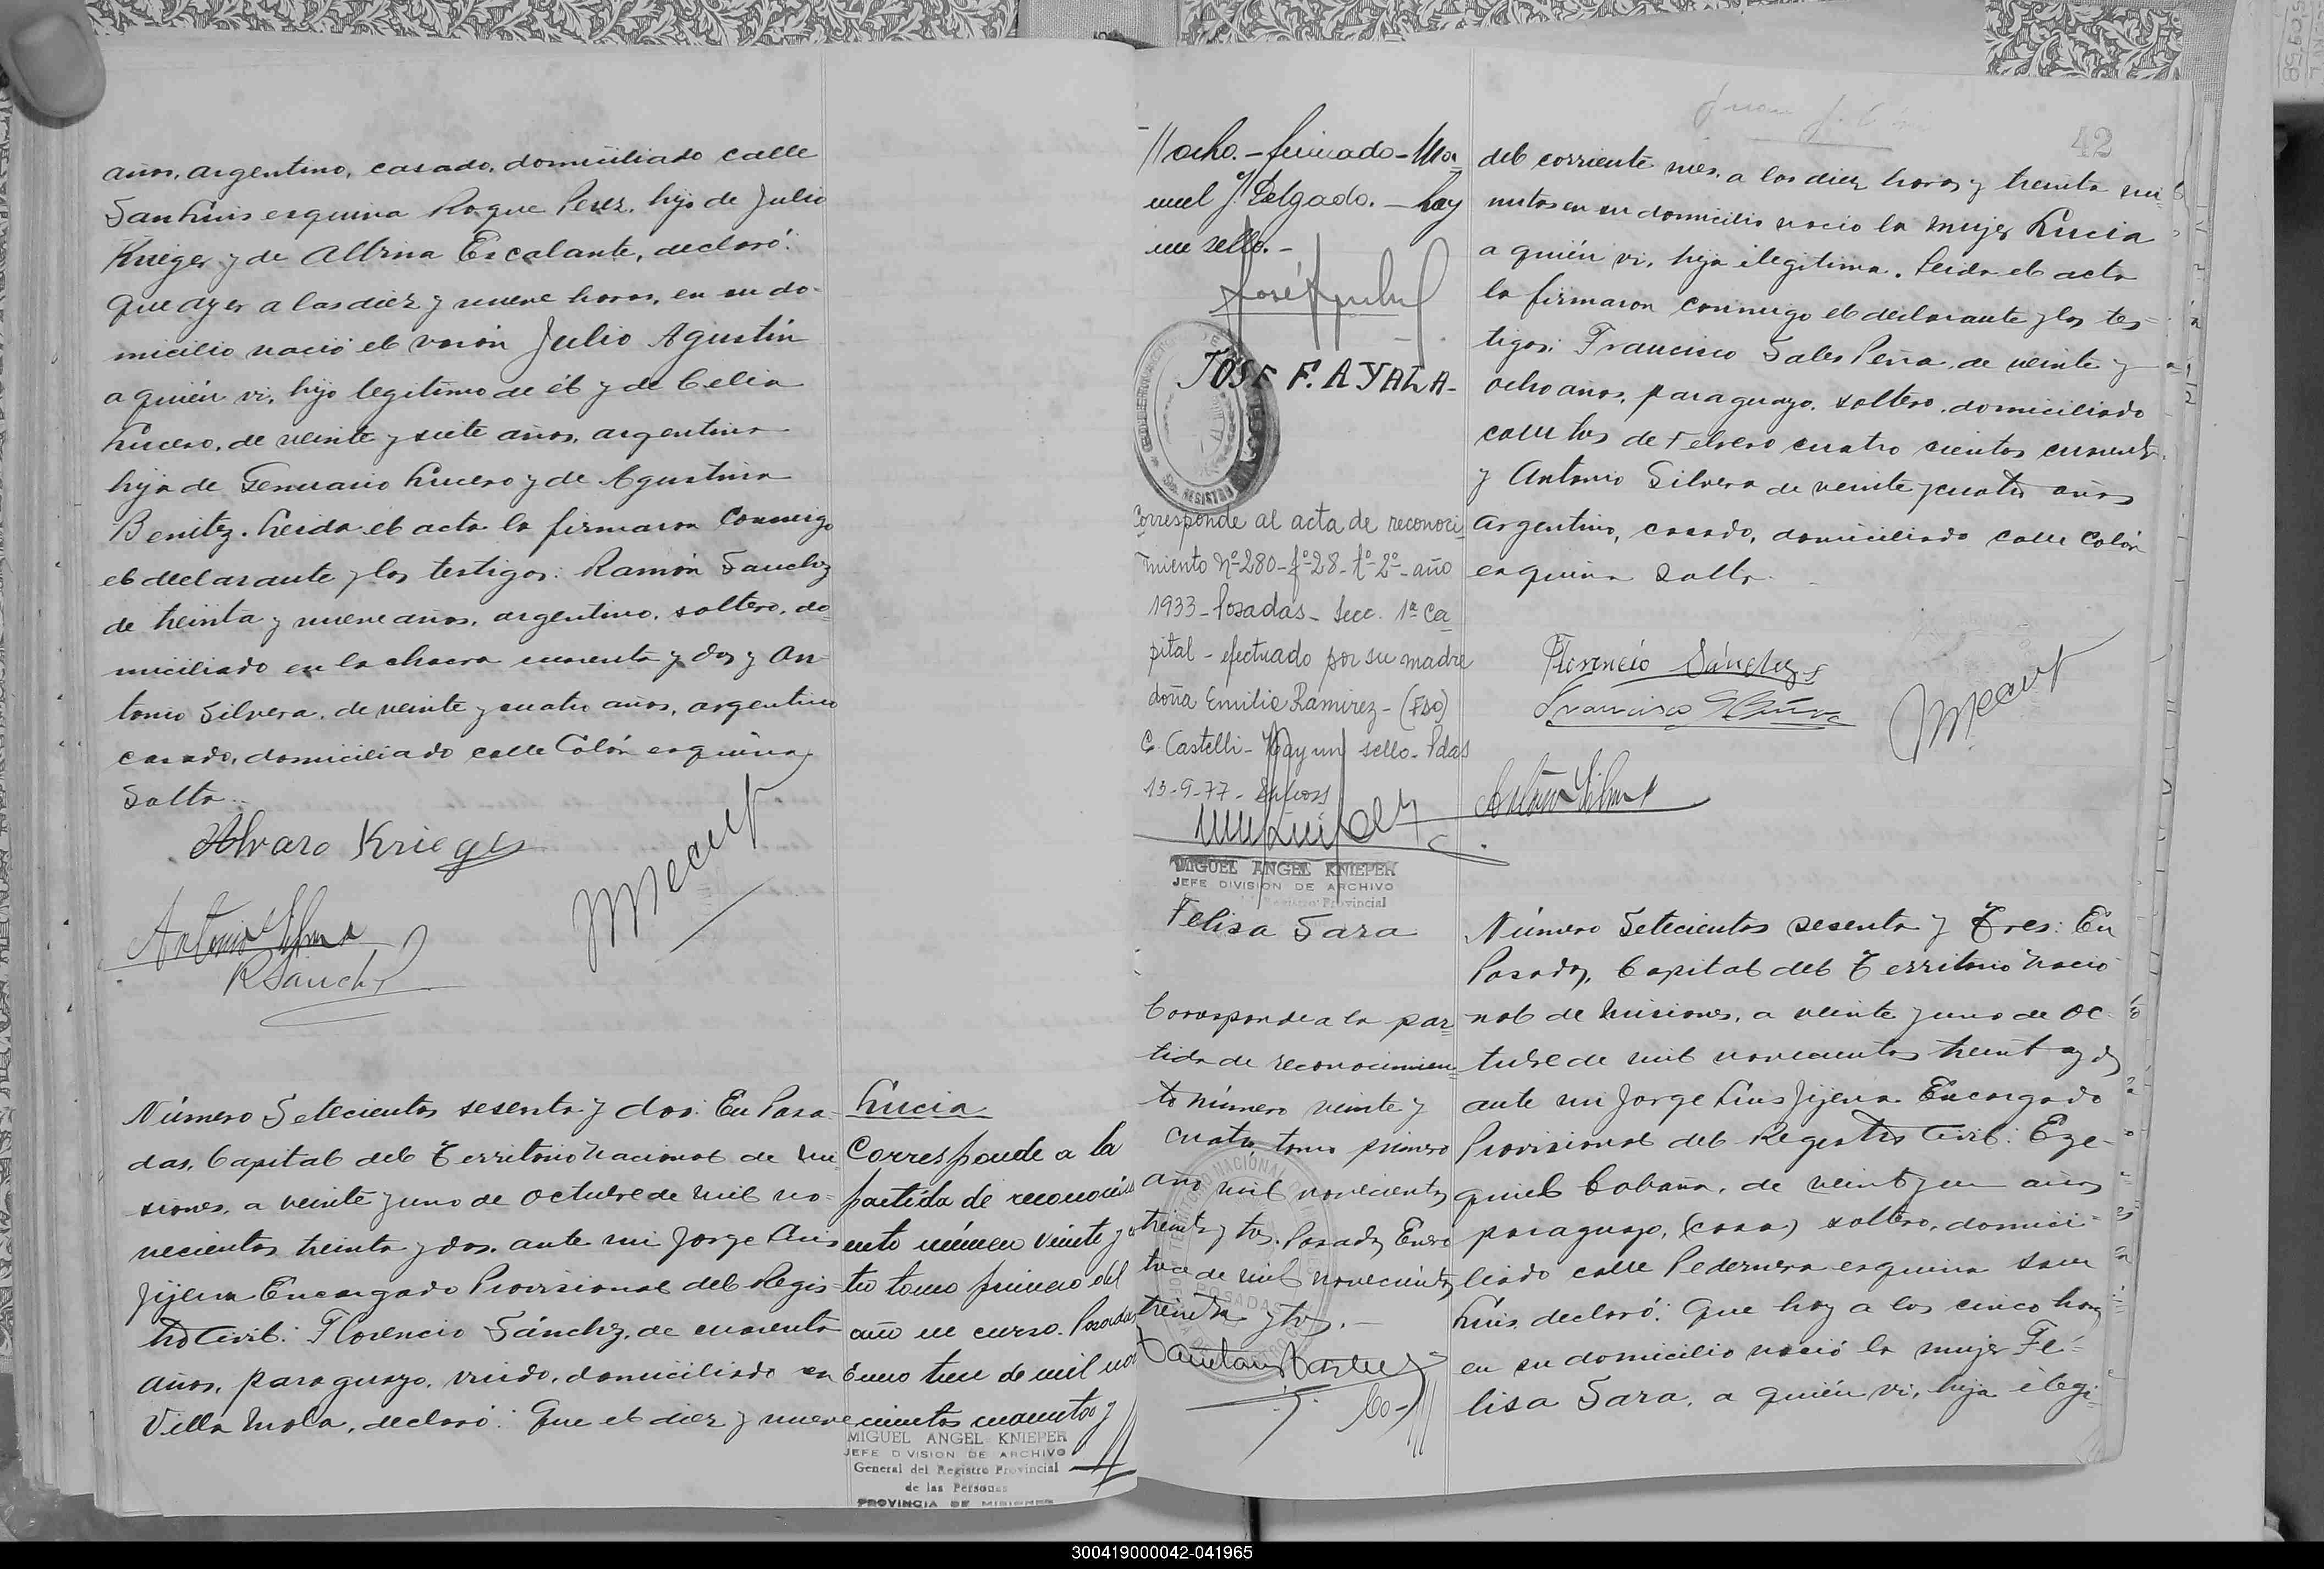 años, argentino, casado, domiciliado calle
San Luis esquina Roque Perez, hijo de Julio
Krieger y de Albina Escalante, declaró:
Que ayer a las diez y nueve horas, en su do-
micilio nació el varón Julio Agustín
a quién vi, hijo legitimo de él y de Celia
Lucero, de veinte y siete años, argentina
hija de Genuario Lucero y de Agustina
Benitez. Leida el acta la firmaron conmigo
el declarante y los testigos: Ramón Sanchez
de treinta y nueve años, argentino, soltero, do-
miciliado en la chacra cuarenta y dos y An-
tonio Silvera, de veinte y cuatro años, argentino
casado, domiciliado calle Colón esquina
Salta.
Alvaro Krieger
Antonio Silvera
R Sanchez
Número Setecientos sesenta y dos: En Posa-
das, Capital del Territorio Nacional de Mi-
siones, a veinte y uno de Octubre de mil no-
vecientos treinta y dos, ante mi Jorge Luis
Jijena Encargado Provisional del Regis-
tro Civil: Florencio Sánchez, de cuarenta
años, paraguayo, viudo, domiciliado en
Villa Mola, declaró: Que el diez y nueve
Lucia
Corresponde a la
partida de reconocimi
ento número veinte y
tro tomo primero del
año en curso. Posadas
Enero trece de mil no
cientos cuarenta y
MIGUEL ANGEL KNIEPER
JEFE DIVISION DE ARCHIVO
General del Registro Provincial
de las Personas
PROVINCIA DE MISIONES
//ocho.- firmado - Ma-
nuel J. Delgado. - hay
un sello.-
JOSE F. AYALA-
Corresponde al acta de reconoci-
miento Nº 280 - fº 28 - tº 2º - año
1933 - Posadas - Secc. 1ª Ca-
pital - efectuado por su madre
doña Emilia Ramirez - (Fdo)
C. Castelli - Hay un sello - Pdas
13-9-77 -
MIGUEL ANGEL KNIEPER
JEFE DIVISION DE ARCHIVO
Registro Provincial
Felisa Sara
Corresponde a la par-
tida de reconocimien-
to número veinte y
cuatro tomo primero
año mil novecientos
treinta y tres. Posadas Enero
trece de mil novecientos
treinta y tres.-
42
del corriente mes, a las diez horas y treinta mi-
nutos en su domicilio nació la mujer Lucia
a quién vi, hija ilegitima. Leida el acta
la firmaron conmigo el declarante y los tes-
tigos: Francisco Sales Peña, de veinte y
ocho años, paraguayo, soltero, domiciliado
calle tres de Febrero cuatro cientos cuarenta
y Antonio Silvera de veinte y cuatro años
argentino, casado, domiciliado calle Colón
esquina Salta.
Florencio Sánchez
Francisco S Peña
Antonio Silvera
Número Setecientos sesenta y Tres: En
Posadas, Capital del Territorio Nacio
nal de Misiones, a veinte y uno de Oc-
tubre de mil novecientos treinta y dos
ante mi Jorge Luis Jijena Encargado
Provisional del Registro Civil: Eze-
quiel Cabaña, de veinte y un años
paraguayo, (casa) soltero, domici-
liado calle Pedernera esquina San
Luis, declaró: Que hoy a las cinco horas
en su domicilio nació la mujer Fe-
lisa Sara, a quién vi, hija ilegi-
300419000042-041965